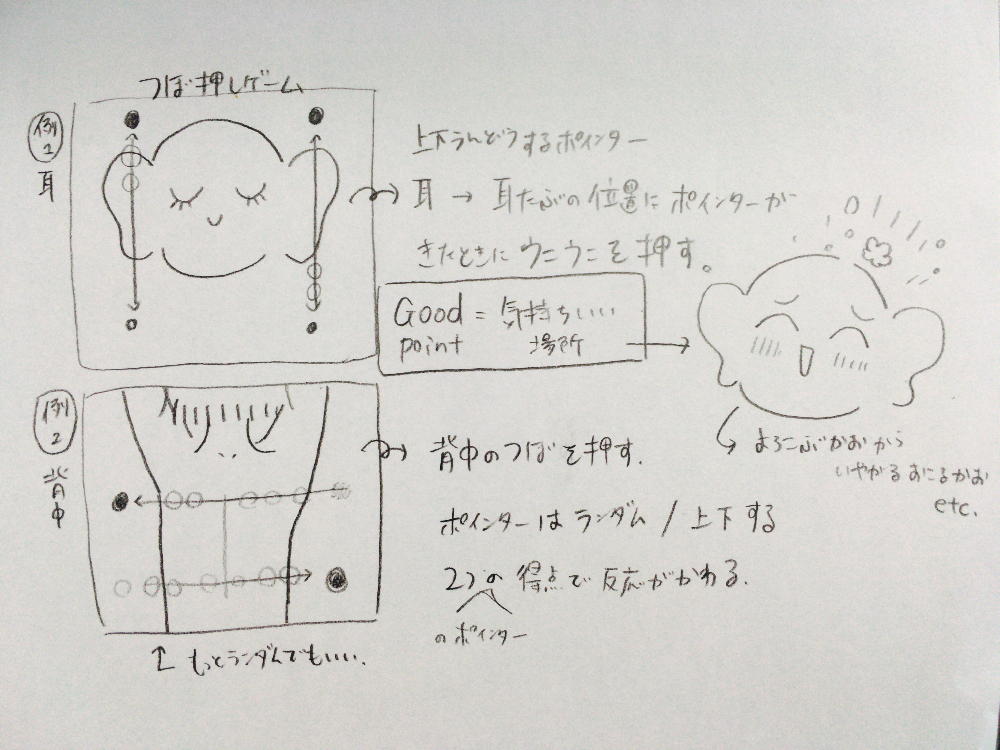 つぼ押しゲーム
例1
耳
上下うんどうするポインター
耳 → 耳たぶの位置にポインターが
きたときにウニウニを押す。
Good = 気持ちいい
point 場所
よろこぶかおから
いやがるおこるかお
etc.
例2
背中
背中のつぼを押す.
ポインターはランダム / 上下する
2つの得点で反応がかわる.
のポインター
↑ もっとランダムでもいい.